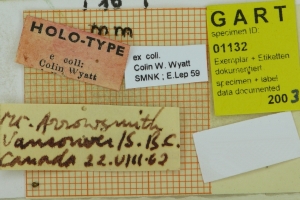 mm
HOLO-TYPE
e coll:
Colin Wyatt
ex coll.
Colin W. Wyatt
SMNK ; E.Lep 59
GART
specimen ID:
01132
Exemplar + Etiketten
dokumentiert
specimen + label
data documented
2003
Mt. Arrowsmith
Vancouver IS. B.C.
Canada 22.VIII.62